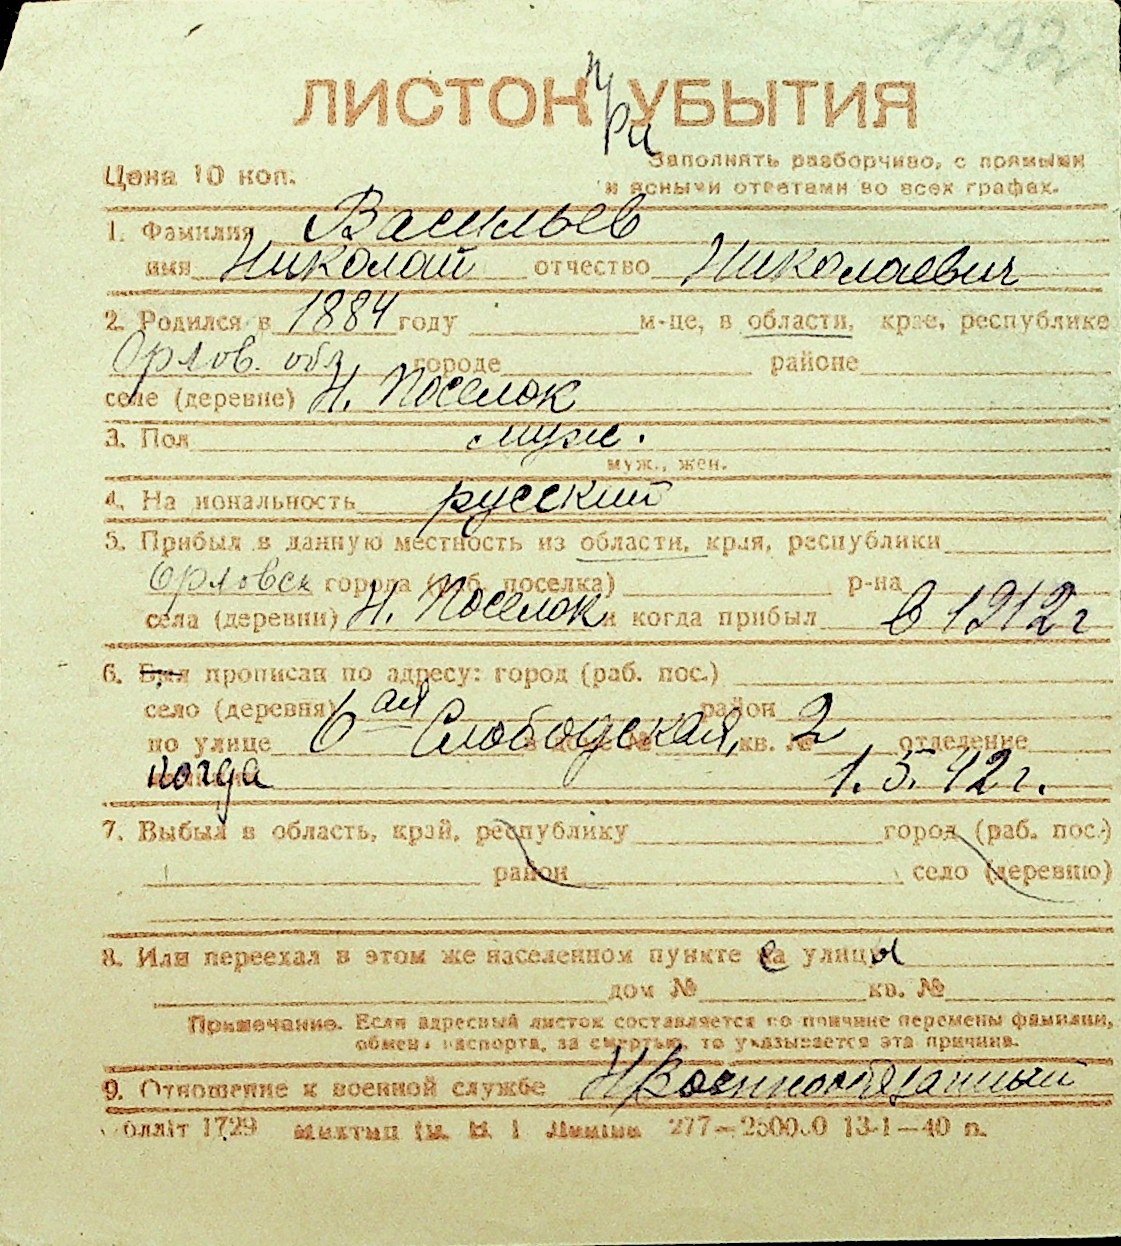 1192
ЛИСТОК УБЫТИЯ
При
Цена 10 коп.
Заполнять разборчиво, с прямыми
и ясными ответами во всех графах.
1. Фамилия Васильев
имя Николай отчество Николаевич
2. Родился в 1884 году м-це, в области, крае, республике
Орлов. обл городе районе
селе (деревне) Н. Поселок
3. Пол муж.
муж., жен.
4. На иональность русский
5. Прибыл в данную местность из области, края, республики
Орловск города (раб. поселка) р-на
села (деревни) Н. Поселок и когда прибыл в 1912 г
6. Был прописан по адресу: город (раб. пос.)
село (деревня) район
по улице 6ая Слободская, кв. № 2 отделение
когда 1.5.42 г.
7. Выбыл в область, край, республику город (раб. пос.)
район село (деревню)
8. Или переехал в этом же населенном пункте с улицы
дом № кв. №
Примечание. Если адресный листок составляется по причине перемены фамилии,
обмена паспорта, за смертью, то указывается эта причина.
9. Отношение к военной службе Н/Военнообязанный
1729 277—2500.0 13-1—40 п.